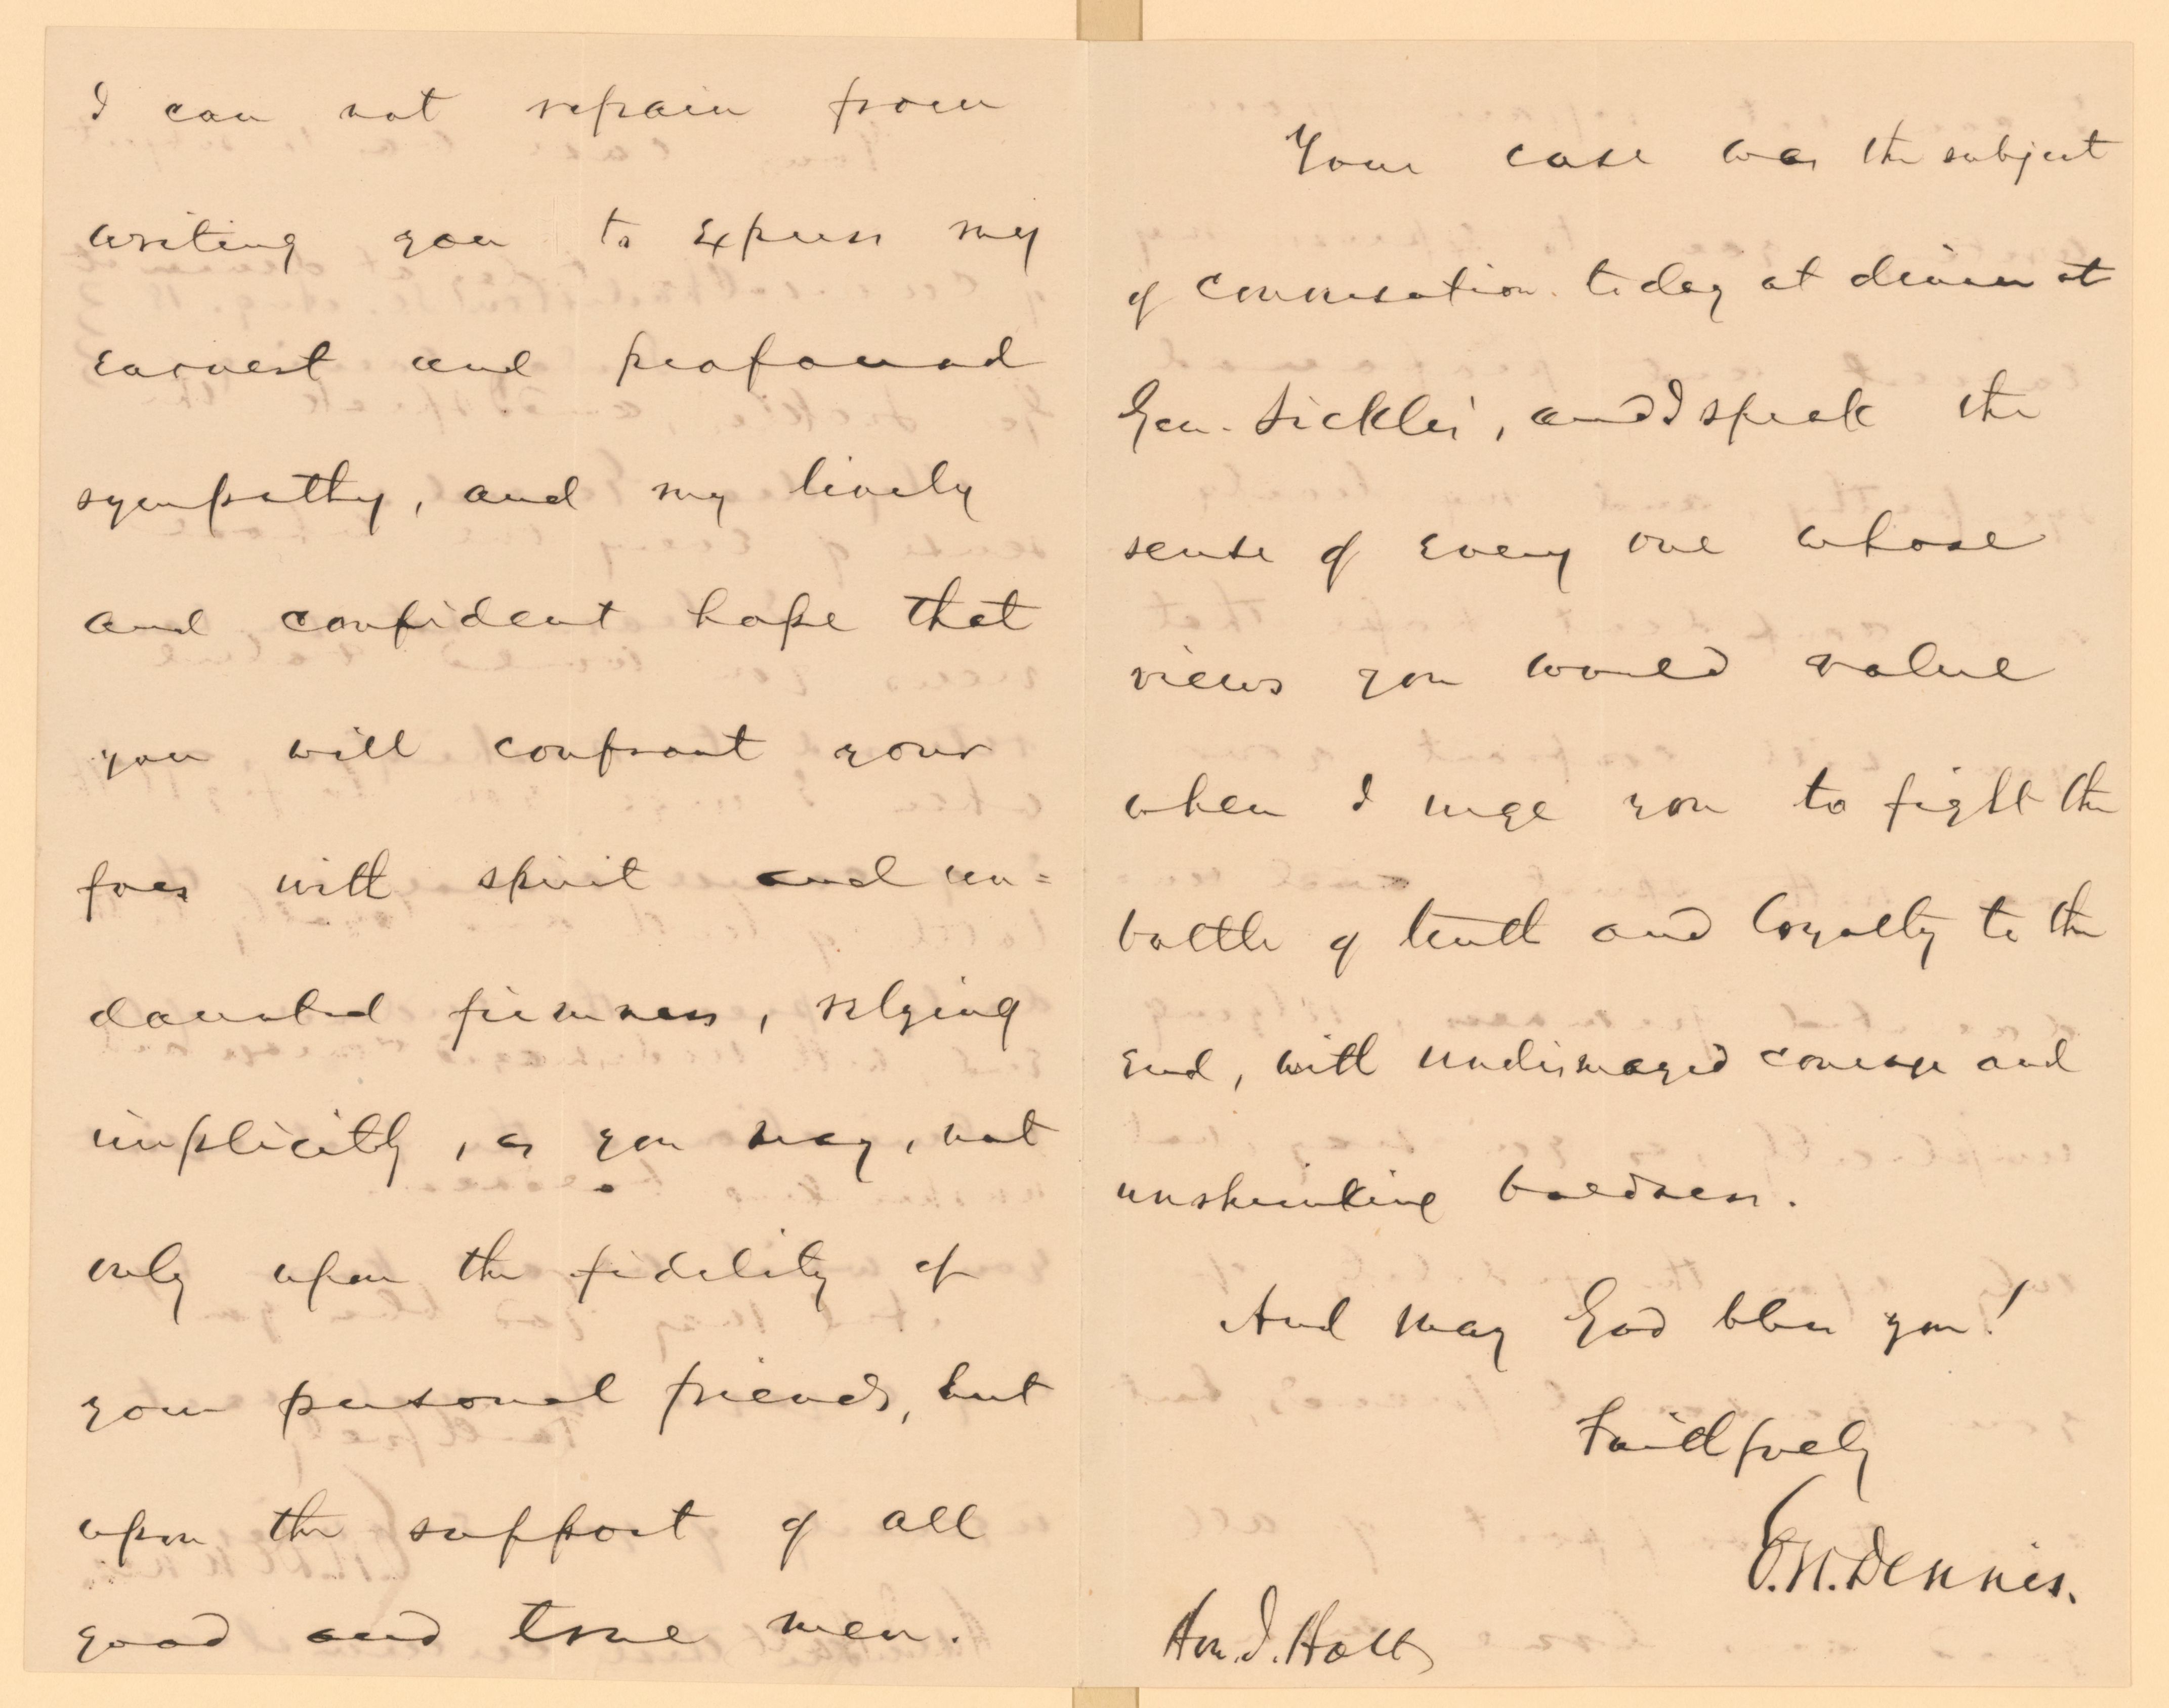 I can not refrain from
writing you to express my
earnest and profound
sympathy, and my lively
and confident hope that
you will confront your
foes with spirit and un=
daunted firmness, relying
implicitly, as you may, not
only upon the fidelity of
your personal friends, but
upon the support of all
good and true men.
Your case was the subject
of conversation today at dinner at
Gen. Sickles', and I speak the
sense of every one whose
views you would value
when I urge you to fight the
battle of truth and loyalty to the
end, with undismayed courage and
unshrinking boldness.
And may God bless you!
Faithfully
Dennis.
Hon. J. Holt